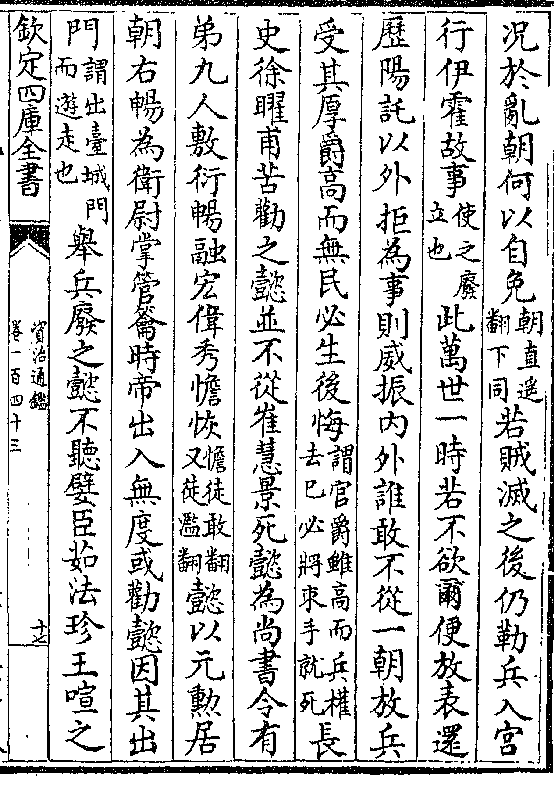 況於亂朝何以自免朝直遥翻下同若賊滅之後仍勒兵入宮
行伊霍故事使之廢立也此萬世一時若不欲爾便放表還
歴陽託以外拒為事則威振内外誰敢不從一朝放兵
受其厚爵髙而無民必生後悔謂官爵雖髙而兵權去已必將束手就死長
史徐曜甫苦勸之懿並不從崔慧景死懿為尚書令有
弟九人敷衍暢融宏偉秀憺恢憺徒敢翻又徒濫翻懿以元勲居
朝右暢為衛尉掌管籥時帝出入無度或勸懿因其出
門謂出臺城門而遊走也舉兵廢之懿不聽嬖臣茹法珍王咺之
欽定四庫全書
資治通鑑
卷一百四十三
十七